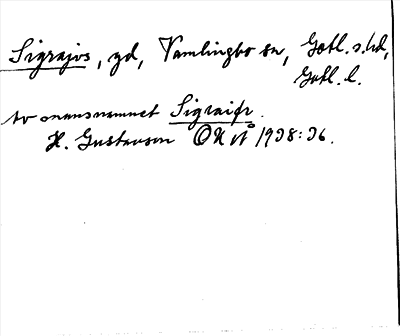 Sigrajvs, gd, Vamlingbo sn, Gotl. s. hd,
Gotl. l.
av mansnamnet Sigraifr.
H. Gustavson OUÅ 1938:36.